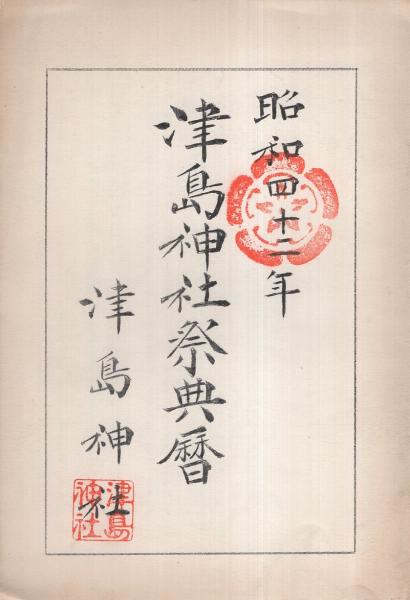 昭和四十二年
津島神社祭典暦
津島神社
津島
神社